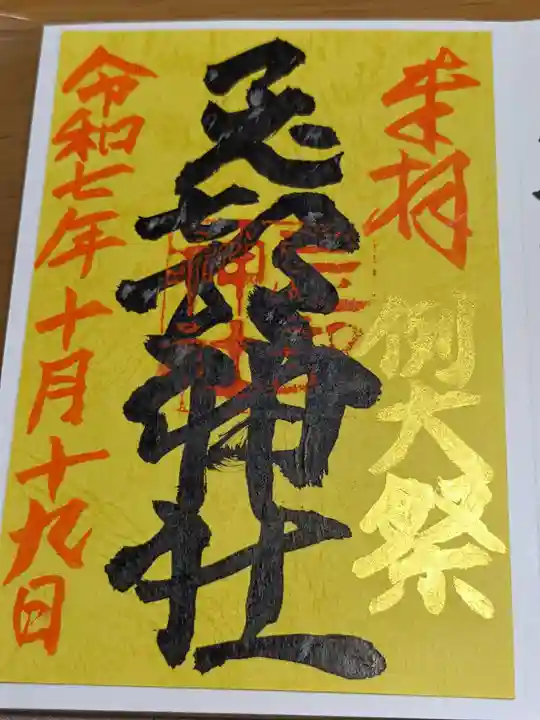 奉拝
例大祭
神社
令和七年十月十九日